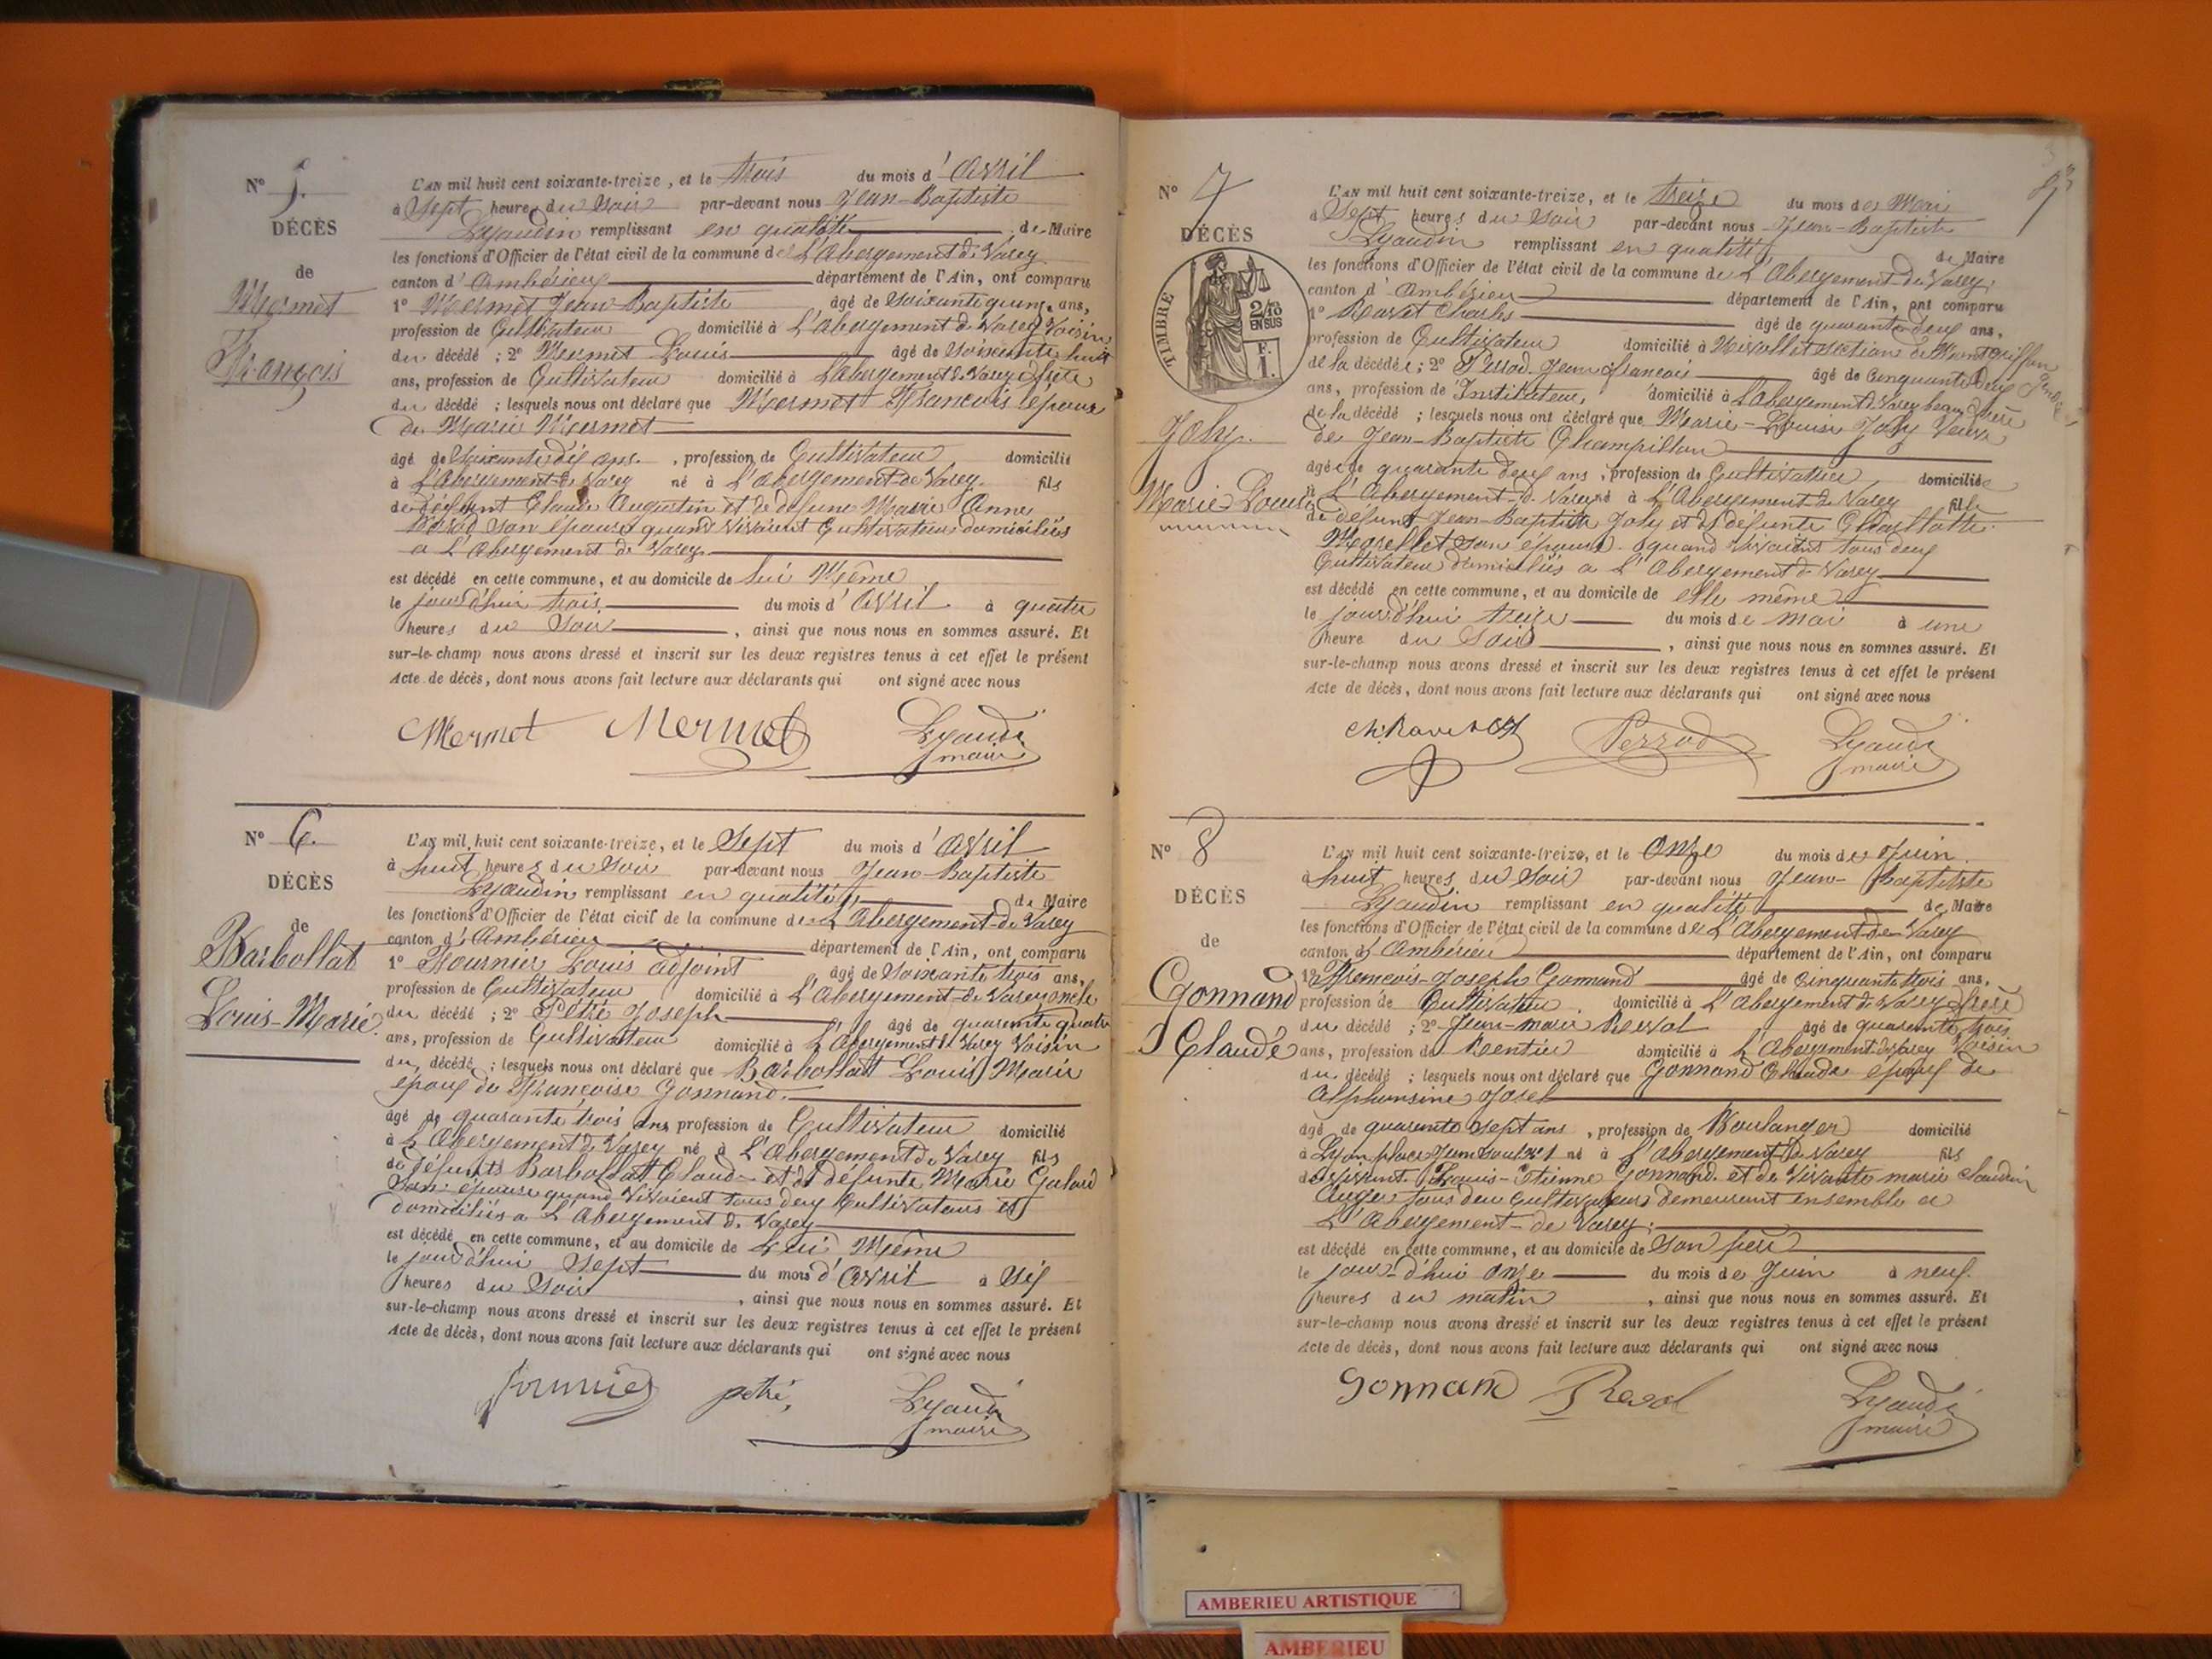 N° 5.
DÉCÈS
de
Mermet
François
L'AN mil huit cent soixante-treize, et le trois du mois d'Avril
à Sept heures du Soir par-devant nous Jean-Baptiste
Lyaudin remplissant en qualité de Maire
les fonctions d'Officier de l'état civil de la commune de L'Abergement de Varey
canton d'Ambérieu département de l'Ain, ont comparu
1° Mermet Jean Baptiste âgé de Soixante quinze ans,
profession de Cultivateur domicilié à L'Abergement de Varey Voisin
du décédé ; 2° Mermet Louis âgé de Soixante huit
ans, profession de Cultivateur domicilié à L'Abergement de Varey frère
du décédé ; lesquels nous ont déclaré que Mermet François époux
de Marie Mermet
âgé de Soixante dix ans, profession de Cultivateur domicilié
à L'Abergement de Varey né à L'abergement de Varey. fils
de défunt Claude Augustin et de défune Marie Anne
son épouse quand vivaient Cultivateurs domiciliés
a L'Abergement de Varey
est décédé en cette commune, et au domicile de lui Même
le jourd'hui trois du mois d'Avril à quatre
heures du Soir, ainsi que nous nous en sommes assuré. Et
sur-le-champ nous avons dressé et inscrit sur les deux registres tenus à cet effet le présent
Acte de décès, dont nous avons fait lecture aux déclarants qui ont signé avec nous
Mermet Mermet Lyaudi
maire
N° 6.
DÉCÈS
de
Barbollat
Louis-Marie
L'AN mil huit cent soixante-treize, et le Sept du mois d'Avril
à huit heures du Soir par-devant nous Jean-Baptiste
Lyaudin remplissant en qualité de Maire
les fonctions d'Officier de l'état civil de la commune de L'Abergement de Varey
canton d'Ambérieu département de l'Ain, ont comparu
1° Fournier Louis adjoint âgé de Soixante trois ans,
profession de Cultivateur domicilié à L'Abergement-de Varey oncle
du décédé ; 2° Pétré Joseph âgé de quarante quatre
ans, profession de Cultivateur domicilié à L'Abergement d. Varey Voisin
du décédé ; lesquels nous ont déclaré que Barbollat Louis Marie
époux de Françoise Gonnand.
âgé de quarante trois ans profession de Cultivateur domicilié
à L'Abergement de Varey né à L'Abergement de Varey fils
de défunts Barbollat Claude et de défunte Marie
Son épouse quand Vivaient tous deux Cultivateurs et
domiciliés a L'Abergement de Varey
est décédé en cette commune, et au domicile de Lui Même
le jourd'hui Sept du mois d'Avril à Six
heures du Soir, ainsi que nous nous en sommes assuré. Et
sur-le-champ nous avons dressé et inscrit sur les deux registres tenus à cet effet le présent
Acte de décès, dont nous avons fait lecture aux déclarants qui ont signé avec nous
fournier petré, Lyaudi
maire
N° 7
DÉCÈS
TIMBRE
2/10
EN SUS
F.
1.
Joly.
Marie Louise
L'AN mil huit cent soixante-treize, et le treize du mois de Mai
à Sept heures du Soir par-devant nous Jean-Baptiste
Lyaudin remplissant en qualité de Maire
les fonctions d'Officier de l'état civil de la commune de L'Abergement-de Varey
canton d'Ambérieu département de l'Ain, ont comparu
1° Ravet Charles âgé de quarante deux ans,
profession de Cultivateur domicilié à section de
de la décédée ; 2° Perrod Jean françois âgé de Cinquante Deux
ans, profession de Instituteur domicilié à L'abergement d. Varey beau frère
de la décédé ; lesquels nous ont déclaré que Marie-Louise Joly Veuve
de Jean-Baptiste Champillon
âgée de quarante deux ans, profession de Cultivatrice domiciliée
à L'Abergement-d. Varey né à L'Abergement de Varey fille
de défunt Jean-Baptiste Joly et de défunte
son épouse quand Vivaient tous deux
Cultivateur domiciliés a L'Abergement d. Varey
est décédé en cette commune, et au domicile de elle même
le jourd'hui treize du mois de mai à une
heure du Soir, ainsi que nous nous en sommes assuré. Et
sur-le-champ nous avons dressé et inscrit sur les deux registres tenus à cet effet le présent
Acte de décès, dont nous avons fait lecture aux déclarants qui ont signé avec nous
Ch. Ravet Perrod Lyaudi
maire
N° 8
DÉCÈS
de
Gonnand
Claude
L'AN mil huit cent soixante-treize, et le Onze du mois de Juin
à huit heures du Soir par-devant nous Jean-Baptiste
Lyaudin remplissant en qualité de Maire
les fonctions d'Officier de l'état civil de la commune de L'Abergement-de Varey
canton d'Ambérieu département de l'Ain, ont comparu
1° François-Joseph Gonnand âgé de Cinquante trois ans,
profession de Cultivateur domicilié à L'Abergement de Varey frère
du décédé ; 2° Jean-marie Revol âgé de quarante trois
ans, profession de Rentier domicilié à L'Abergement de Varey Voisin
du décédé ; lesquels nous ont déclaré que Gonnand Claude époux de
Alphonsine
âgé de quarante Sept ans, profession de Boulanger domicilié
à Lyon place né à L'abergement de Varey fils
de vivant Louis-Etienne Gonnand et de Vivante marie
tous deux Cultivateurs demeurant ensemble a
L'Abergement-de Varey
est décédé en cette commune, et au domicile de Son père
le jour-d'hui onze du mois de Juin à neuf
heures du matin, ainsi que nous nous en sommes assuré. Et
sur-le-champ nous avons dressé et inscrit sur les deux registres tenus à cet effet le présent
Acte de décès, dont nous avons fait lecture aux déclarants qui ont signé avec nous
Gonnand Revol Lyaudi
maire
AMBERIEU ARTISTIQUE
AMBERIEU